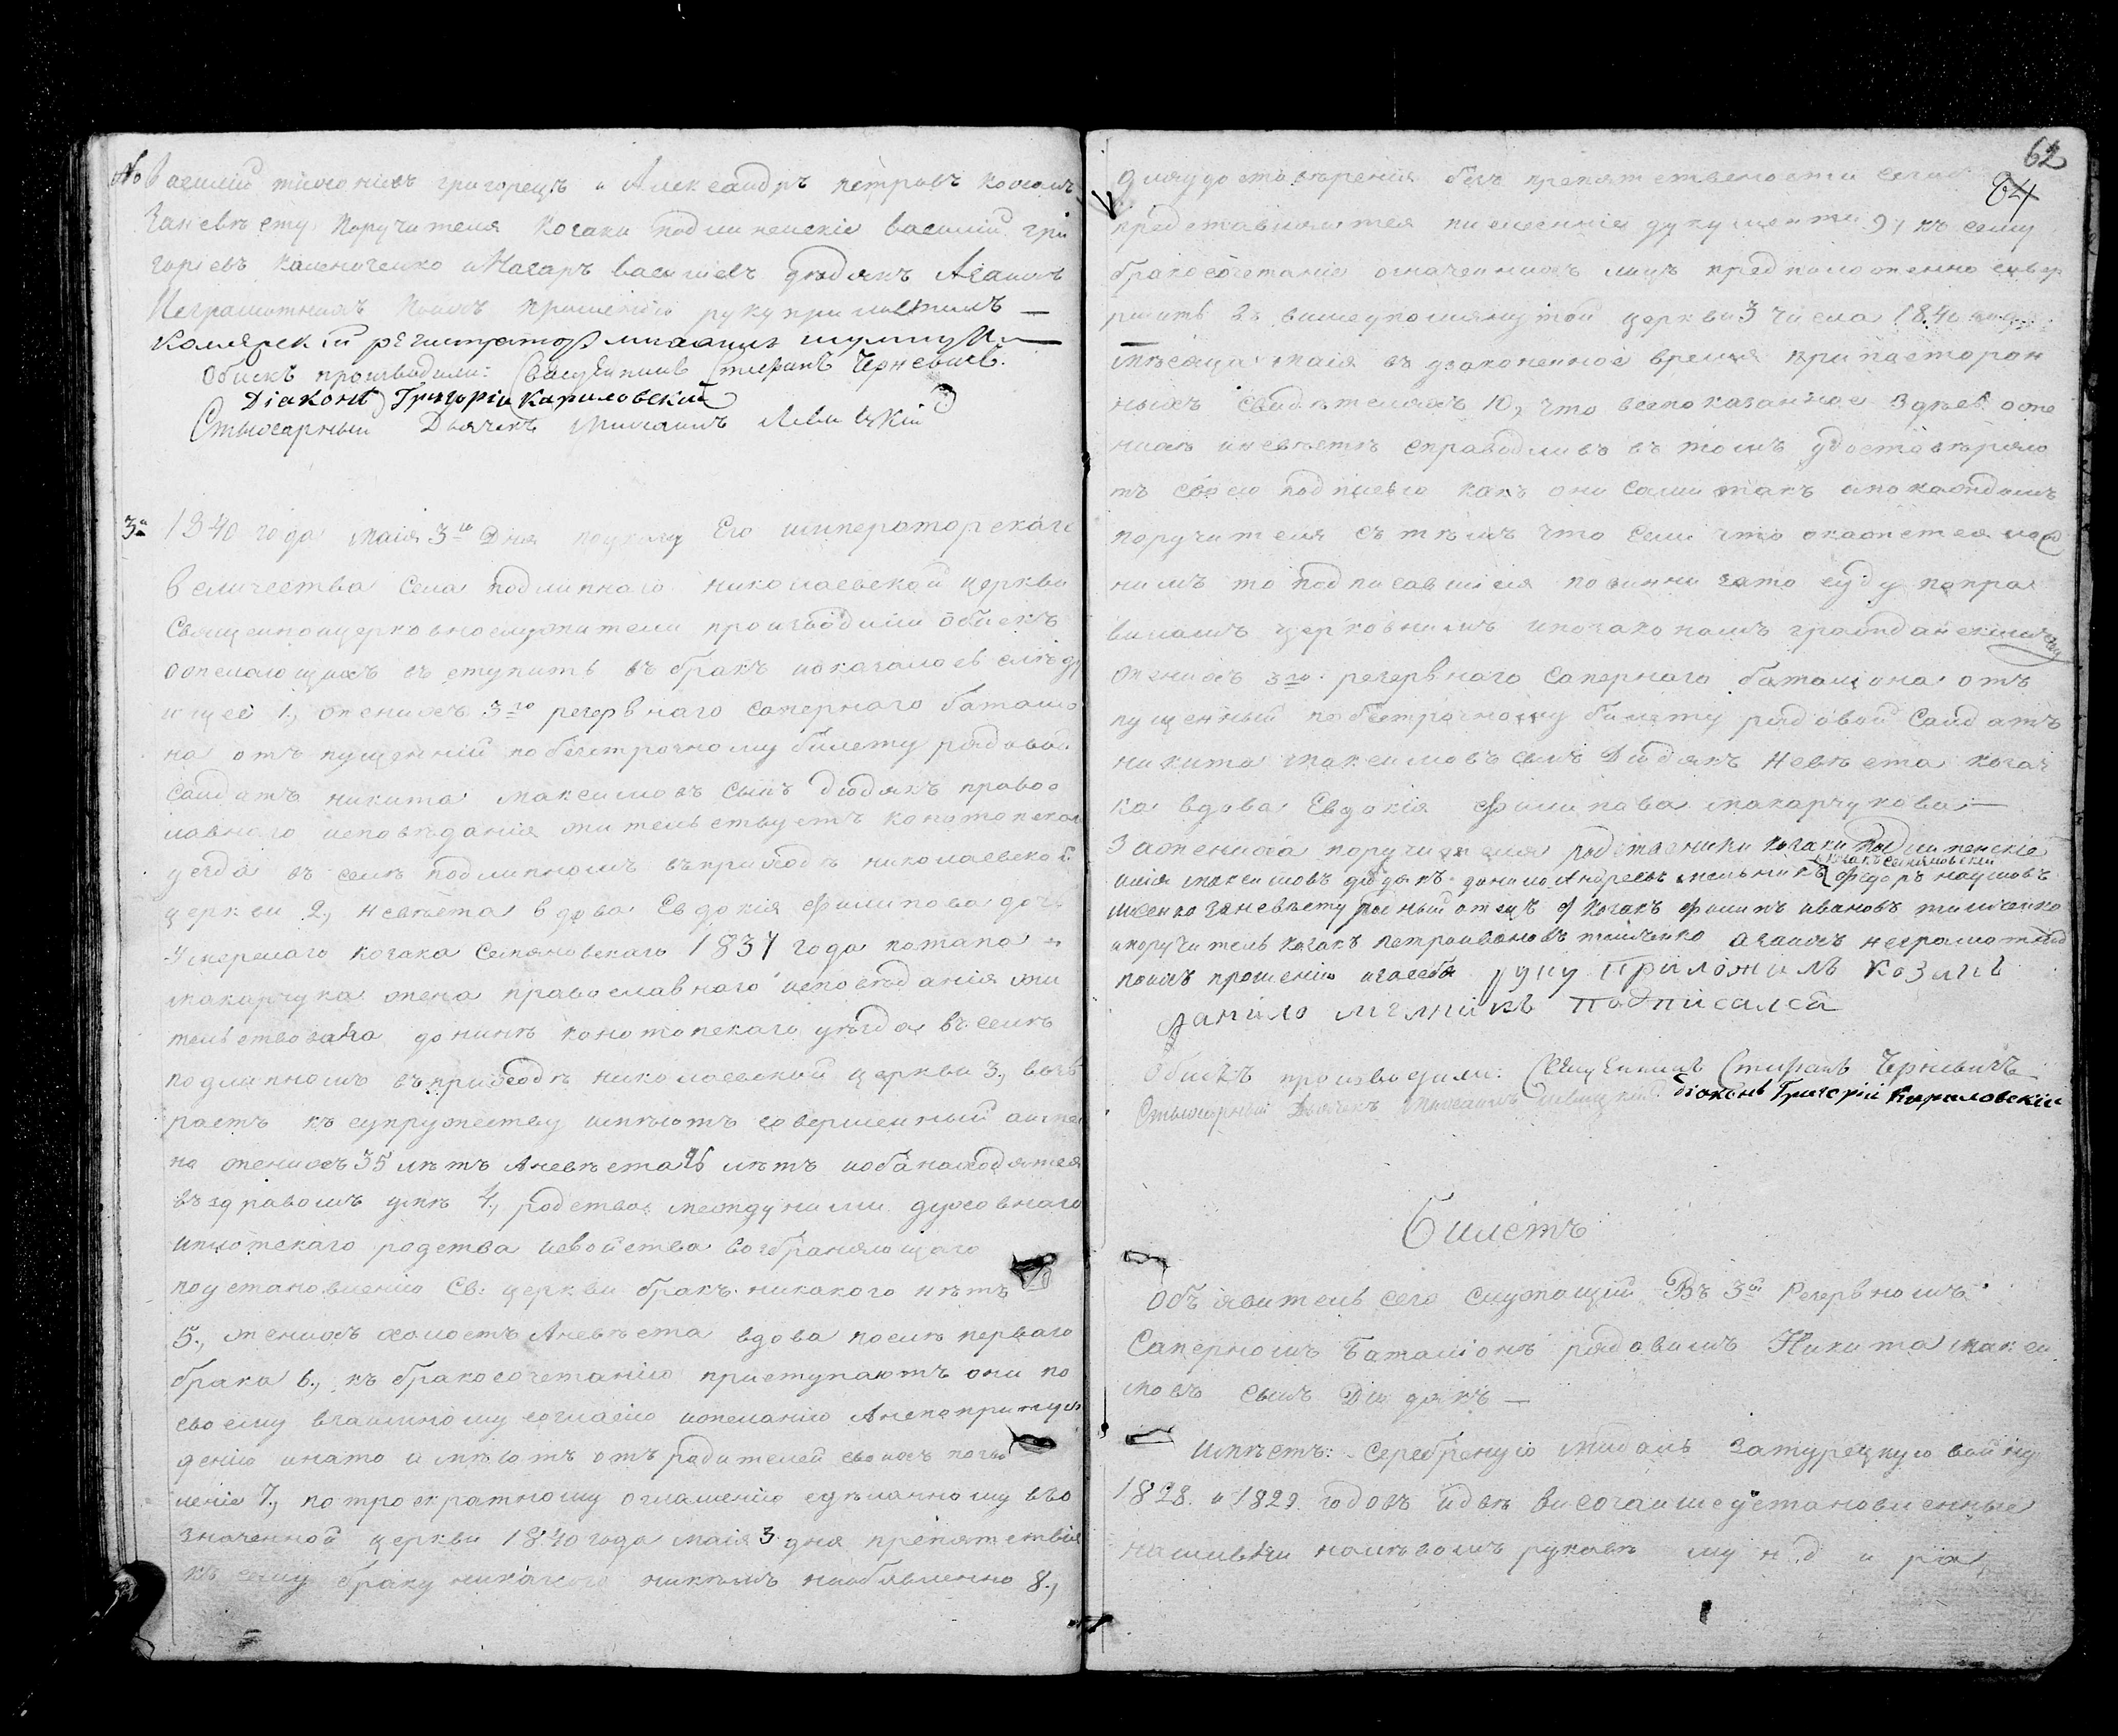 Василій тимоніевъ григорецъ и Александръ петровъ
За невѣсту поручителя козаки подлипенскіе василій гри
горіевъ каленченко и Назаръ василіевъ дюдякъ А самъ
Неграмотнихъ поихъ прошенію руку приложилъ —
колежскій регистраторъ михаилъ
Обискъ производили: Священникъ Стефанъ Черневичъ.
Діаконъ Григорій Кариловскій
Стихарный Дьячекъ Михаилъ Левицкій
3й 1840 года маія 3го Дня по указу Его императорскаго
Величества Села подлипного николаевской церкви
Священноцерковнослужители производили обискъ
о желающихъ вступить въ бракъ и оказалось слѣду
ющее 1., женихъ 3го резервнаго сапернаго баталио
на отъ пущенній по безстрочному билету рядовой
салдатъ никита максимовъ сынъ дюдякъ правос
лавнаго исповѣданія жительствуетъ конотопскаго
уезда въ селѣ подлипномъ въ приходѣ николаевской
церкви 2., невѣста вдова Евдокія Филипова дочь
умерлаго козака Семяновскаго 1837 года потапа
макарчука жена православнаго исповѣданія жи
тельствовала до нинѣ конотопскаго уѣзда въ селѣ
подлипномъ въ приходѣ николаевской церкви 3., возъ
растъ къ супружеству имѣютъ совершенный а имен
но женихъ 35 лѣтъ А невѣста лѣтъ и оба находятся
въ здравомъ умѣ 4., родства между ними духовнаго
и плотскаго родства и свойства возбраняющаго
по установленію Св: церкви бракъ никакого нѣтъ
5., женихъ холостъ А невѣста вдова послѣ перваго
брака 6., къ бракосочетанію приступаютъ они по
своему взаимному согласію и желанію А не по принуж
денію и на то имѣютъ отъ родителей своихъ позво
леніе 7., по троекратному оглашенію сдѣланному въ о
значенной церкви 1840 года маія 3 дня препятствія
къ сему браку никакого никѣмъ не объявленно 8.,
62
84
для удостовѣренія безъ препятственности сего
представляются писменнія дукументы 9, къ сему
бракосочетаніе означеннихъ лицъ предположенно совер
шить въ вишеупомянутой церкви 3 числа 1840
мѣсяца маія въ узаконенное время при посторон
нихъ свидѣтеляхъ 10, что все показанное здѣсь о же
нихѣ и невѣстѣ справедливо въ томъ удостовѣряю
тъ своею подписью какъ они сами такъ и по каждомъ
поручителя съ тѣмъ что если что окажется лож
нимъ то подписавшіеся повинни за то суду по пра
виламъ церковнимъ и по законамъ гражданскимъ
женихъ 3го резервнаго сапернаго баталіона отъ
пущенный по безстрочному билету рядовой Салдатъ
никита максимовъ сынъ Дюдякъ Невѣста козач
ка вдова Евдокія Филипова макарчукова —
За жениха поручителя родственики козаки подлипенскіе
илія максимовъ дюдякъ данило Андреевъ мельникъ и козакъ семяновскій Федоръ наумовъ
за невѣсту родный отецъ козакъ филипъ ивановъ тимченко
и поручитель козакъ петро ивановъ тимченко А самъ неграмотныхъ
поихъ прошенію и за себя руку приложилъ козакъ
данило мелникъ подписался
Обискъ производили: Священникъ Стефанъ Черневичъ
Стихарный Дьячекъ Михаилъ Левицкій Діаконъ Григорій Кариловскій
Билетъ
Объявитель сего служащій Въ 3мъ Резервномъ
Саперномъ Баталіонѣ рядовымъ Никита макси
мовъ сынъ Дюдякъ —
имѣетъ: Серебреную мидаль за турецкую войну
1828. и 1829. годовъ и двѣ височайше установленные
нашивки на лѣвомъ рукавѣ